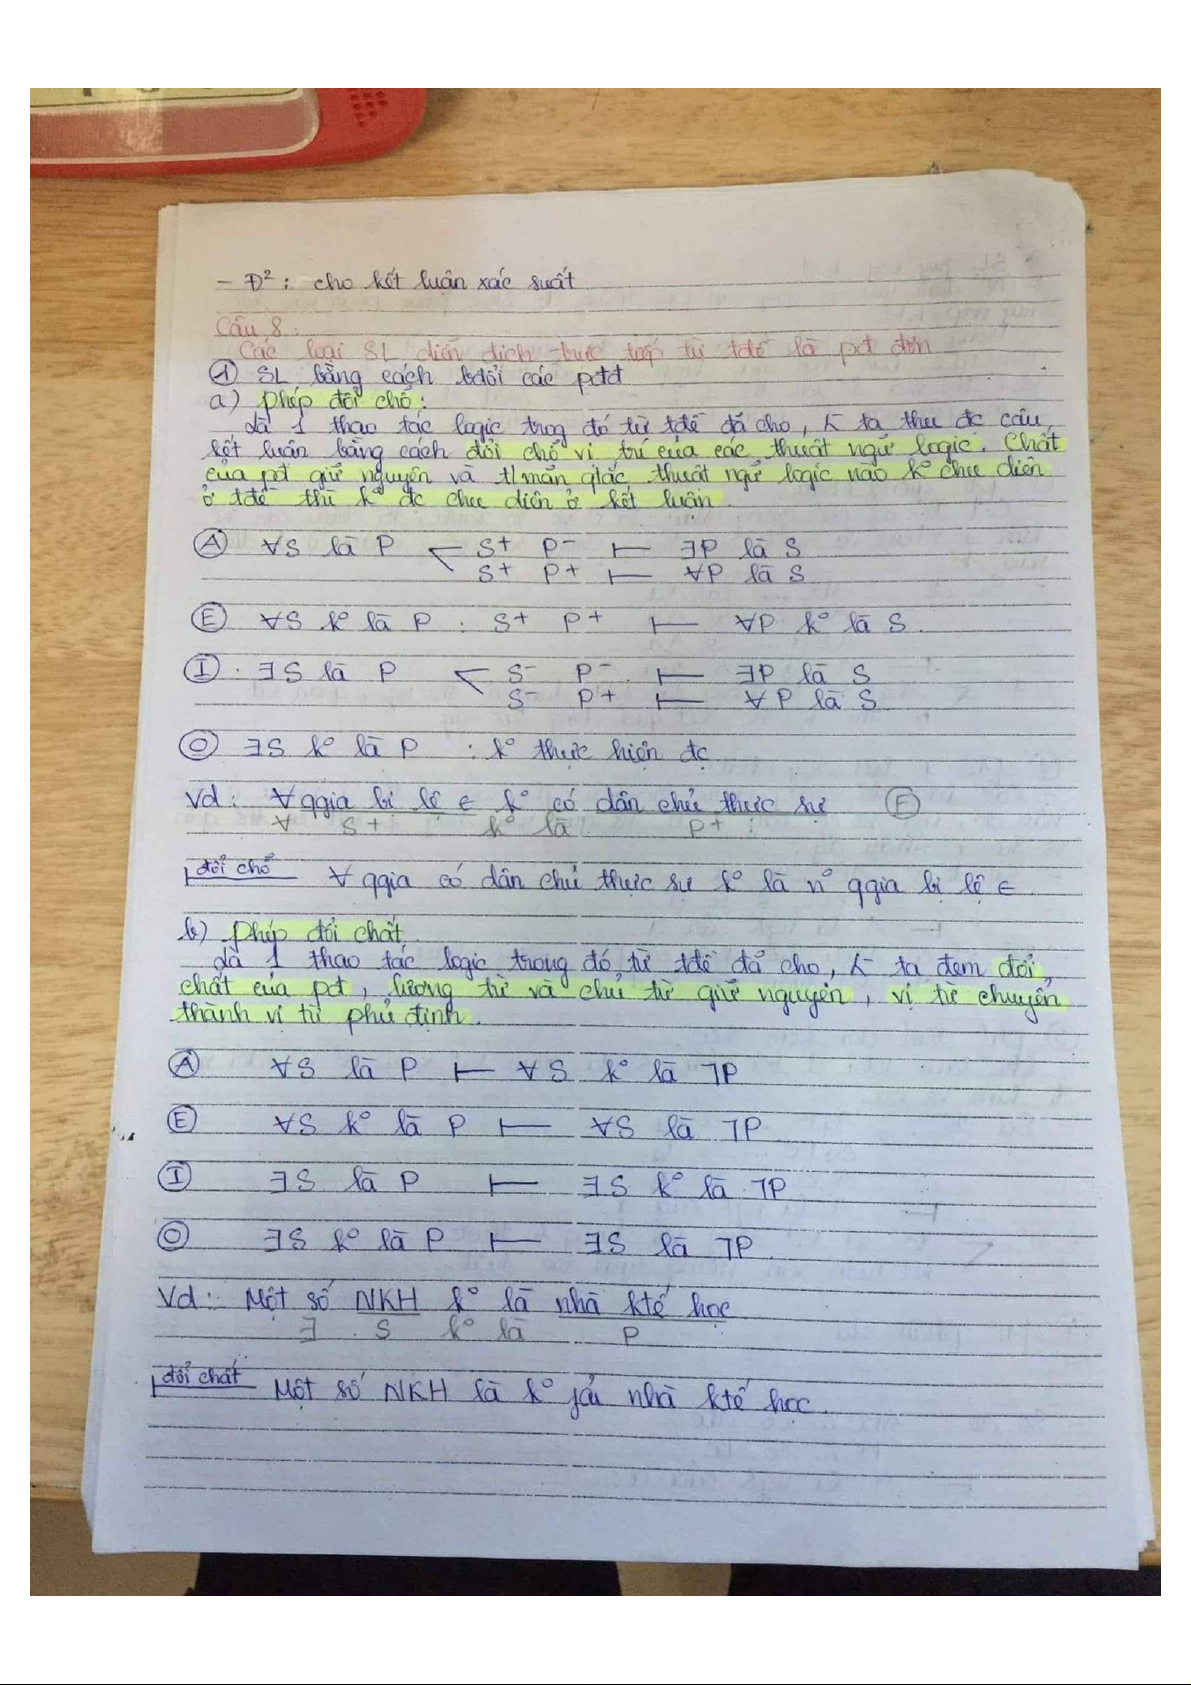 - Đ²: cho kết luận xác suất
Câu 8:
Các loại SL diễn dịch trực tiếp từ tđề là pđ đơn
① SL bằng cách bđổi các pđđ
a) Phép đổi chỗ:
Là 1 thao tác logic trog đó từ tđề đã cho, ta thu đc câu
kết luận bằng cách đổi chỗ vị trí của các thuật ngữ logic. Chất
của pđ giữ nguyên và t/mãn q/tắc, thuật ngữ logic nào k° chu diên
ở tđề thì k° đc chu diên ở kết luận.
Ⓐ ∀S là P < S+ P- ⊢ ∃P là S
S+ P+ ⊢ ∀P là S
Ⓔ ∀S k° là P : S+ P+ ⊢ ∀P k° là S
Ⓘ ∃S là P < S- P- ⊢ ∃P là S
S- P+ ⊢ ∀P là S
Ⓞ ∃S k° là P : k° thực hiện đc
Vd: ∀ qgia bị lệ ∈ k° có dân chủ thực sự Ⓔ
∀ S+ k° là P+
đổi chỗ ∀ qgia có dân chủ thực sự k° là n° qgia bị lệ ∈
b) Phép đổi chất
Là 1 thao tác logic trong đó, từ tđề đã cho, ta đem đổi
chất của pđ, lượng từ và chủ từ giữ nguyên, vị từ chuyển
thành vị từ phủ định.
Ⓐ ∀S là P ⊢ ∀S k° là ⅂P
Ⓔ ∀S k° là P ⊢ ∀S là ⅂P
Ⓘ ∃S là P ⊢ ∃S k° là ⅂P
Ⓞ ∃S k° là P ⊢ ∃S là ⅂P
Vd: Một số NKH k° là nhà ktế học
∃ S k° là P
đổi chất Một số NKH là k° fải nhà ktế học.